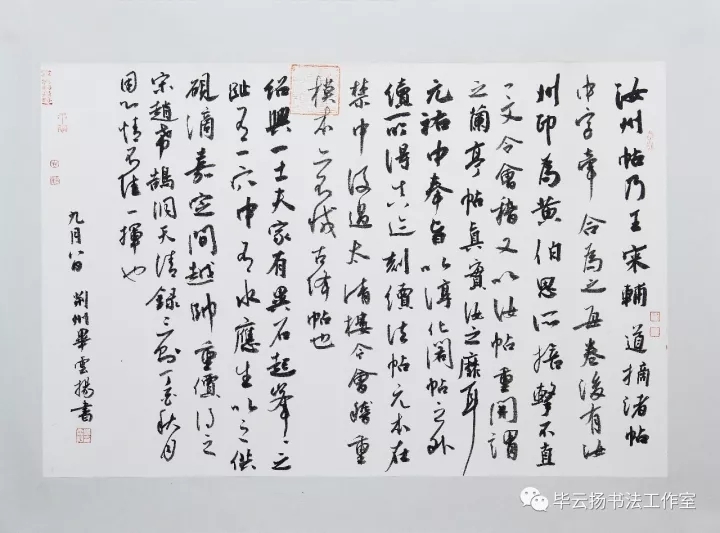 汝州帖乃王寀輔道摘渚帖
中字牽合為之每卷後有汝
州印為黄伯思所掊擊不直
一文今會稽又以汝帖重開謂
之蘭亭帖真實汝之靡耳
元祐中奉旨以淳化閣帖之外
續所得真迹刻續法帖元本在
禁中後過太清樓今會稽重
模本亦不減古绛帖也
紹興一士夫家有異石起峯〻之
趾有一穴中有水應生以之供
硯滴嘉定間越帥重價得之
宋趙希鵠洞天清録二則丁酉秋月
因心情不佳一揮也
九月八日 荆州畢雲揚書
毕云扬书法工作室